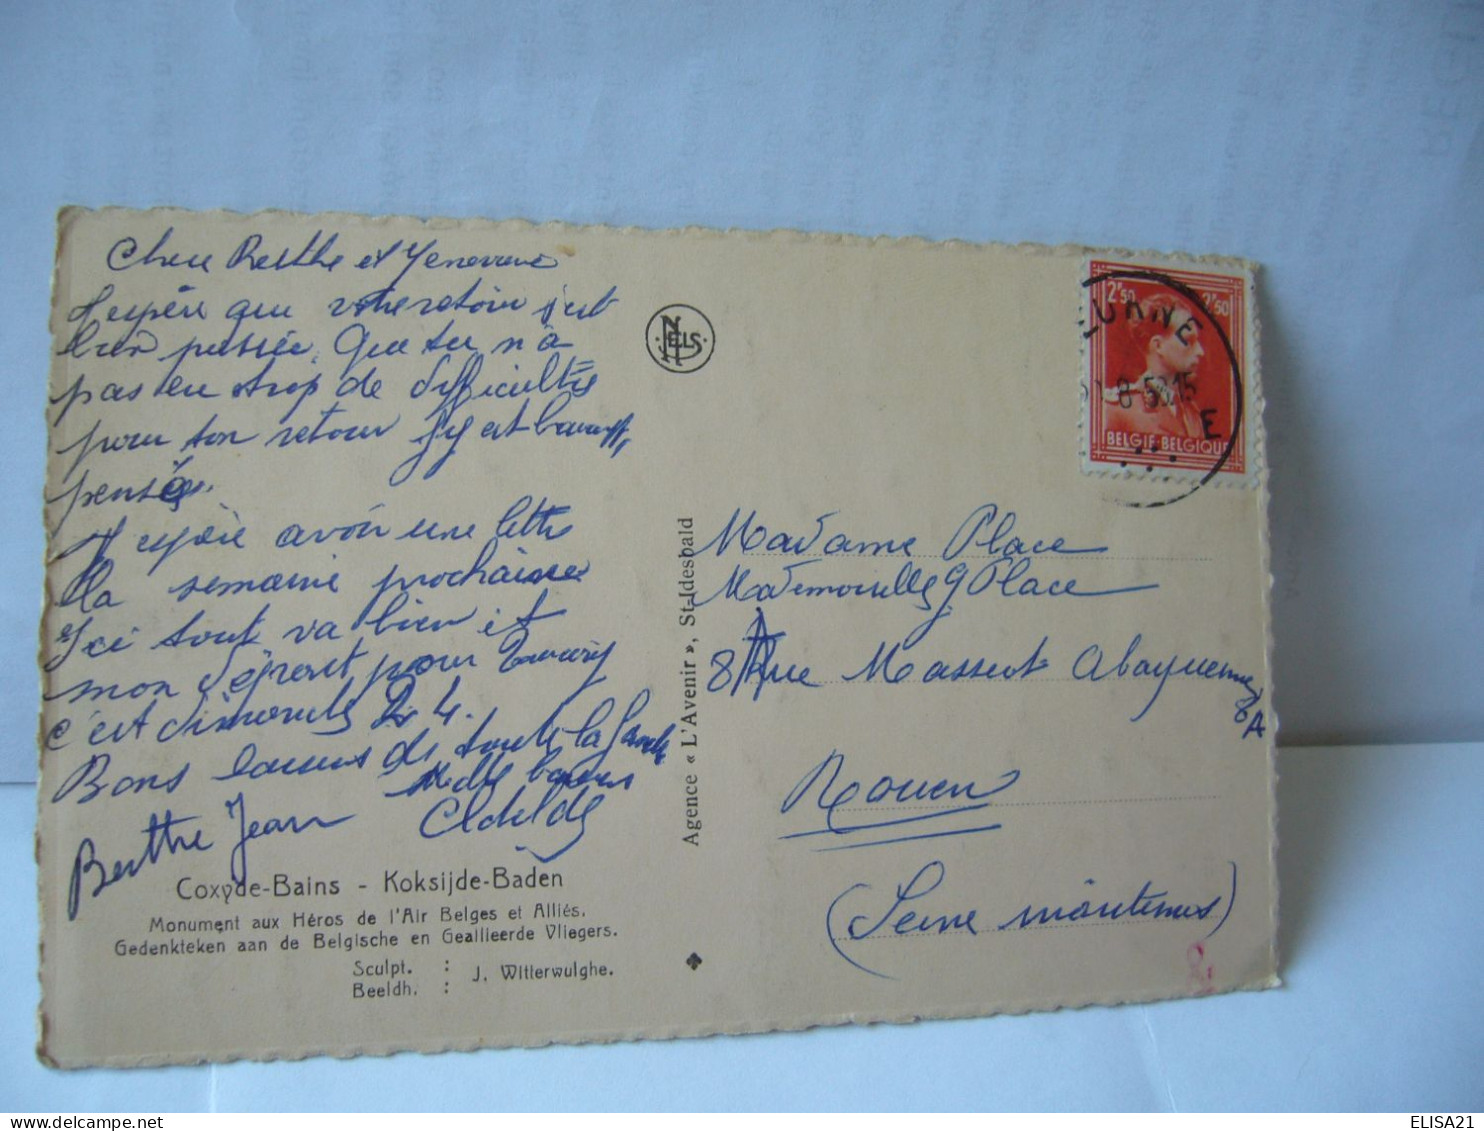 Chere Berthe et Genevieve
J'espère que votre retour s'est
bien passée, que tu n'a
pas eu trop de difficultés
pour ton retour j'y ai beaucoup
pensée.
J'espère avoir une lettre
la semaine prochaine
Ici tout va bien et
mon départ pour
c'est dimanche 24.
Bons baisers de toute la famille
Mille baisers
Berthe Jean Clotilde
Coxyde-Bains - Koksijde-Baden
Monument aux Héros de l'Air Belges et Alliés.
Gedenkteken aan de Belgische en Geallieerde Vliegers.
Sculpt. : J. Witterwulghe.
Beeldh. :
NELS
Agence « L'Avenir », St-Idesbald
2F50 2F50
BELGIE-BELGIQUE
EURNE
8 5 15
E
Madame Place
Mademoiselle G Place
8A Rue Massent
8A
Rouen
(Seine maritimes)
ELISA21